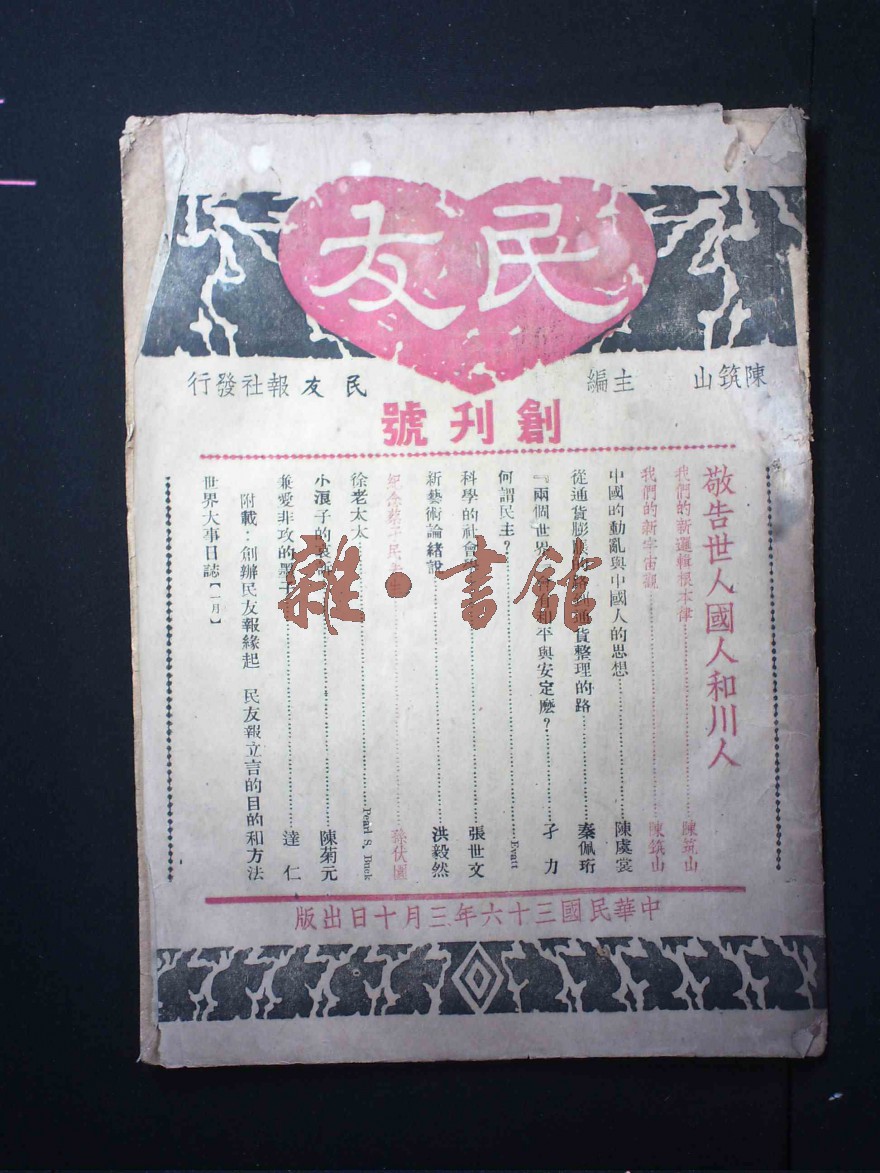 民友
陳筑山 主編
民友報社發行
創刊號
敬告世人國人和川人
我們的新邏輯根本律……陳筑山
我們的新宇宙觀……陳筑山
中國的動亂與中國人的思想……陳虞裳
從通貨膨脹的路到通貨整理的路……秦佩珩
『兩個世界』 和平與安定麼？……子力
何謂民主？……Evatt
科學的社會……張世文
新藝術論緒說……洪毅然
紀念蔡孑民先生……孫伏園
徐老太太……Pearl S. Buck
小浪子的哀……陳菊元
兼愛非攻的墨子……達仁
附載：創辦民友報緣起 民友報立言的目的和方法
世界大事日誌【一月】
中華民國三十六年三月十日出版
雜·書館